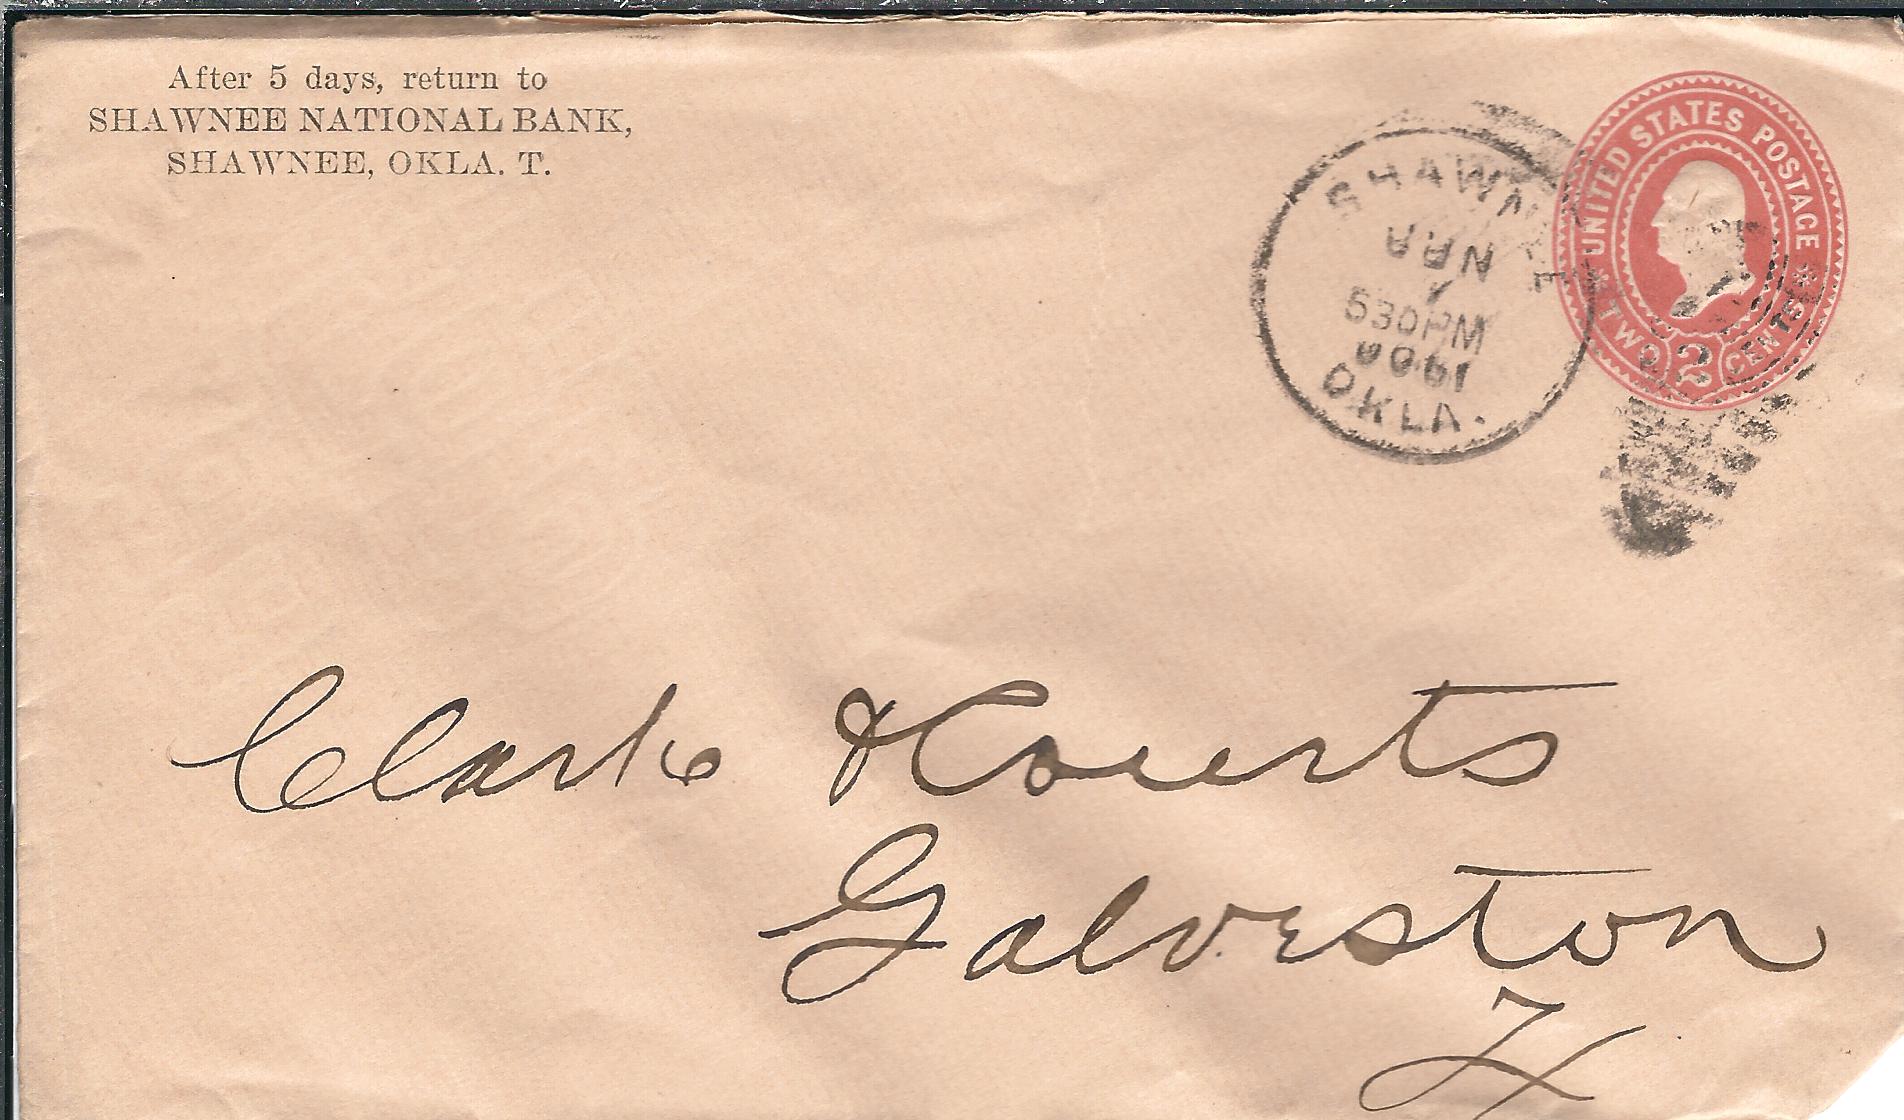 After 5 days, return to
SHAWNEE NATIONAL BANK,
SHAWNEE, OKLA. T.
SHAWNEE
530PM
OKLA.
UNITED STATES POSTAGE
TWO 2 CENTS
Clark & Courts
Galveston
Tx